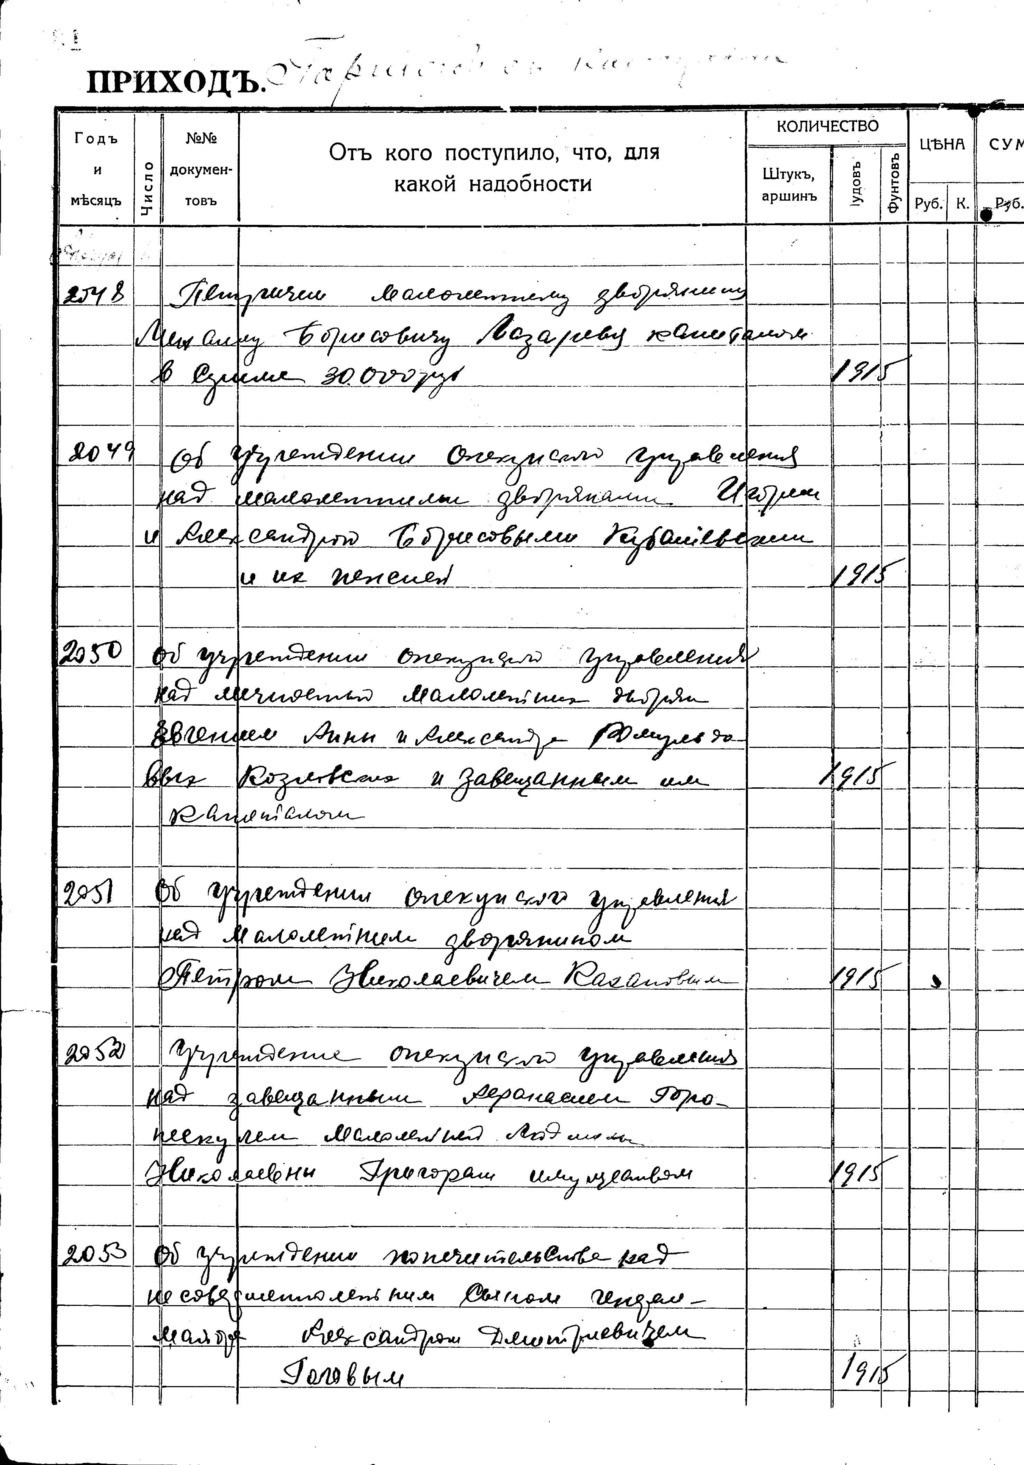 ПРИХОДЪ.
Годъ и мѣсяцъ
Число
№№ докумен-товъ
Отъ кого поступило, что, для
какой надобности
КОЛИЧЕСТВО
Штукъ, аршинъ
Пудовъ
Фунтовъ
ЦѢНА
Руб. К.
СУМ
Руб.
2048 малолетнему дворянину
Михаилу Борисовичу Лазареву капиталом
в сумме 30.000 руб 1915
2049 Об учреждении опекунского управления
над малолетними дворянами Игорем
и Александрой Борисовыми
и их пенсией 1915
2050 Об учреждении опекунского управления
над личностью малолетних дворян
Евгением Анны и Александра Ромуальдо-
вых Козловских и завещанным им 1915
капиталом
2051 Об учреждении опекунского управления
над малолетним дворянином
Петром Николаевичем Казановым 1915
2052 Учреждение опекунского управления
над завещанным Афанасием Горо-
малолетней Людмилы
Николаевны Григораш имуществом 1915
2053 Об учреждении попечительства над
несовершеннолетним сыном генерал-
майора Александром Дмитриевичем
Головым 1915